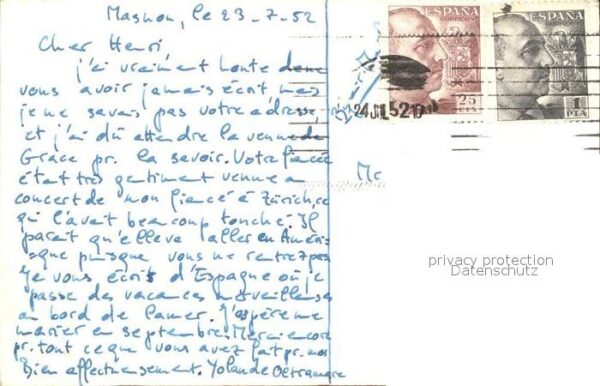 Masnou, le 23-7-52
Cher Henri
j'ai vraiment honte de ne
vous avoir jamais écrit mais
je ne savais pas votre adresse
et j'ai dû attendre la venue de
Grace pr. la savoir. Votre fiancée
était très gentiment venue au
concert de mon fiancé à Zürich, ce
qui l'avait beaucoup touché. Il
parait qu'elle va aller en Améri-
que puisque vous ne rentrez pas
Je vous écris d'Espagne où je
passe des vacances merveilleuses
au bord de la mer. J'espère me
marier en septembre. Merci encore
pr. tout ce que vous avez fait pr. moi
Bien affectueusement. Yolande Oltramare
ESPAÑA
CORREOS
25
CTS
ESPAÑA
1
PTA
24 JUL 52
privacy protection
Datenschutz